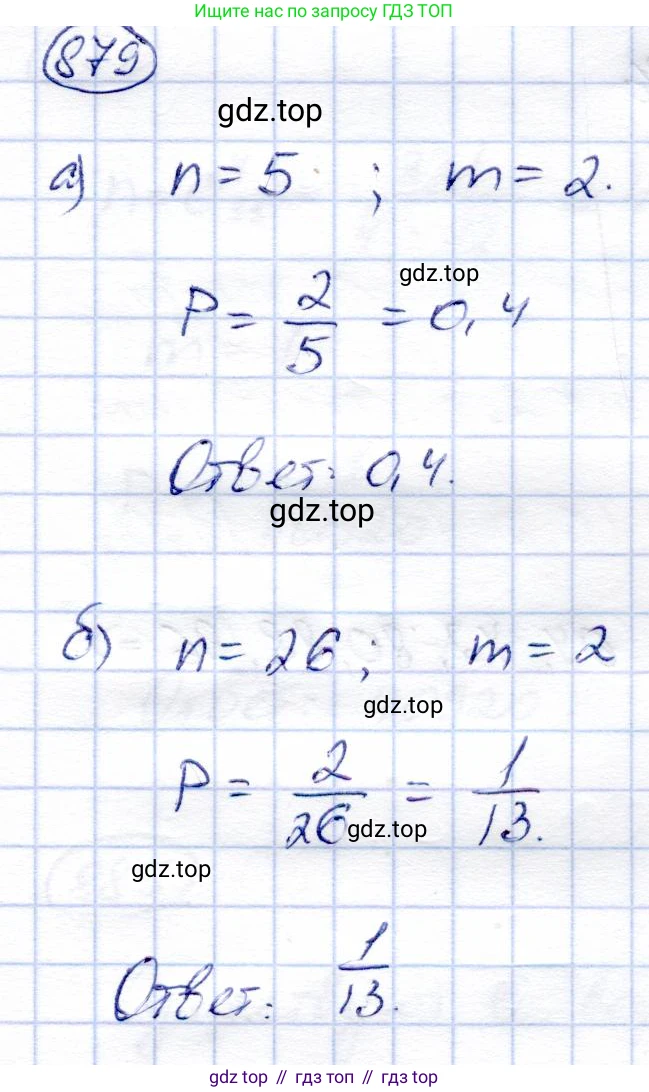 Ищите нас по запросу ГДЗ ТОП
879
gdz.top
а) n = 5 ; m = 2.
gdz.top
P = 2/5 = 0,4
Ответ: 0,4.
gdz.top
б) n = 26 ; m = 2
gdz.top
P = 2/26 = 1/13.
gdz.top
gdz.top
Ответ: 1/13.
gdz.top // гдз топ // гдз.top